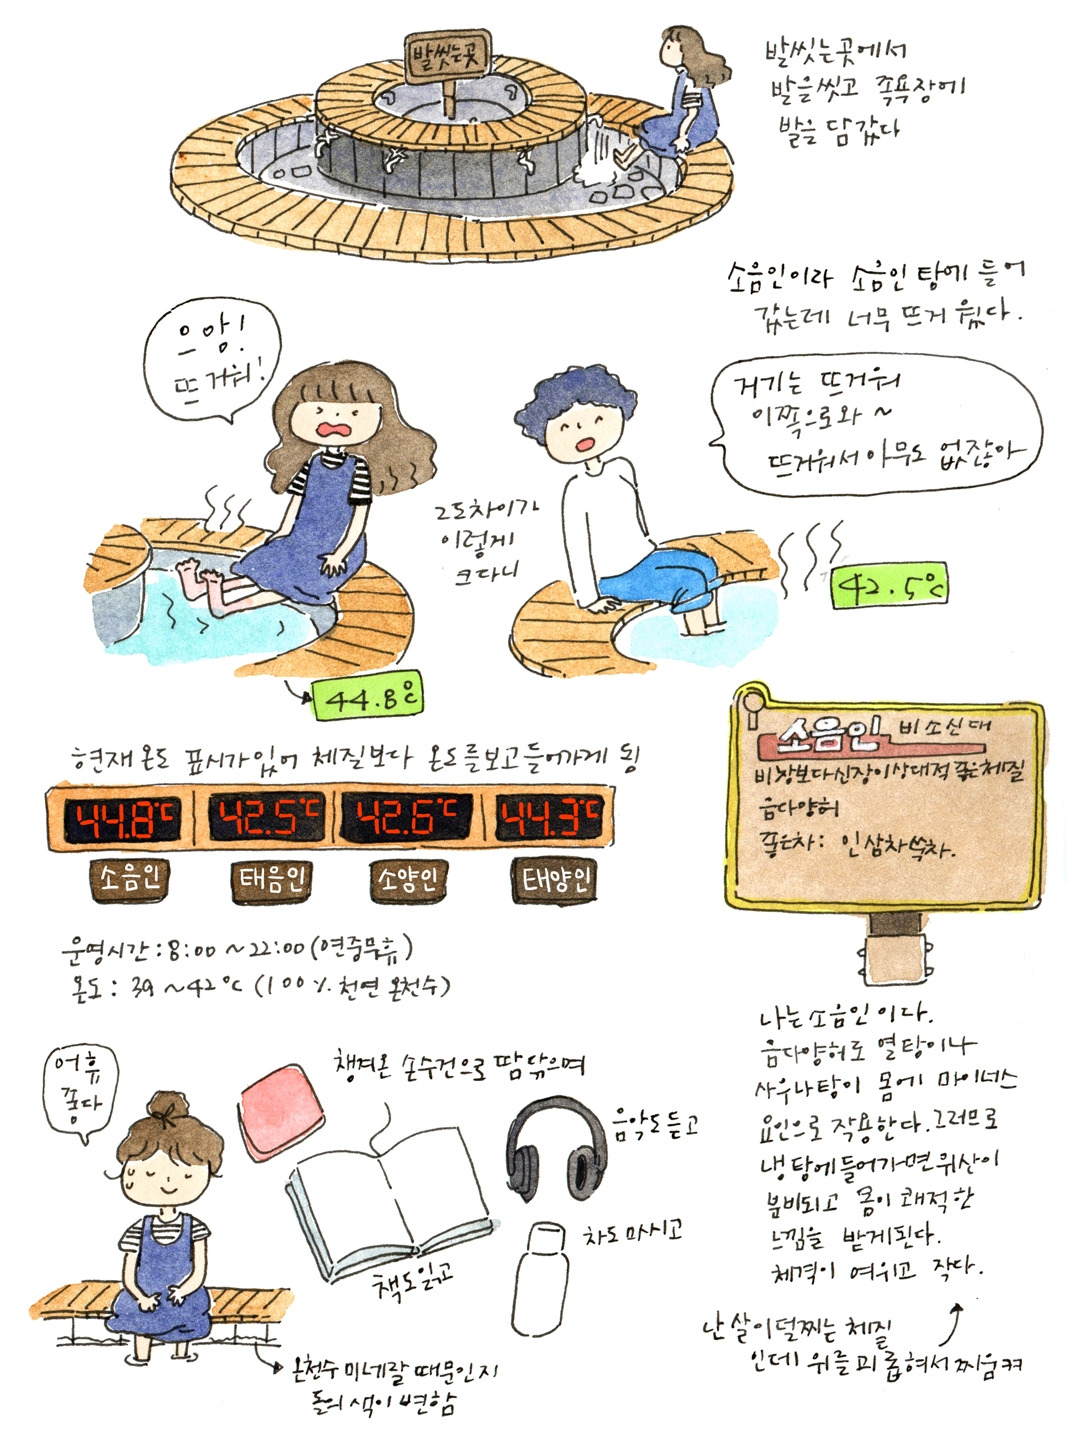 발씻는곳
발씻는곳에서
발을씻고 족욕장에
발을 담갔다
소음인이라 소음인 탕에 들어
갔는데 너무 뜨거웠다.
으앙!
뜨거워!
거기는 뜨거워
이쪽으로와~
뜨거워서 아무도 없잖아
2도차이가
이렇게
크다니
42.5℃
44.8℃
현재온도 표시가있어 체질보다 온도를보고들어가게 됨
44.8℃ 42.5℃ 42.6℃ 44.3℃
소음인 태음인 소양인 태양인
운영시간:8:00~22:00(연중무휴)
온도: 39~42℃ (100% 천연 온천수)
소음인 비소신대
비장보다신장이상대적 좋은체질
음다양허
좋은차: 인삼차쑥차.
나는소음인이다.
음다양허로 열탕이나
사우나탕이 몸에 마이너스
요인으로 작용한다.그러므로
냉탕에들어가면위산이
분비되고 몸이 쾌적한
느낌을 받게된다.
체격이 여위고 작다.
난살이덜찌는체질
인데 위를괴롭혀서찌움ㅋㅋ
어휴
좋다
챙겨온 손수건으로 땀닦으며
음악도듣고
차도마시고
책도읽고
온천수미네랄때문인지
돌의색이변함